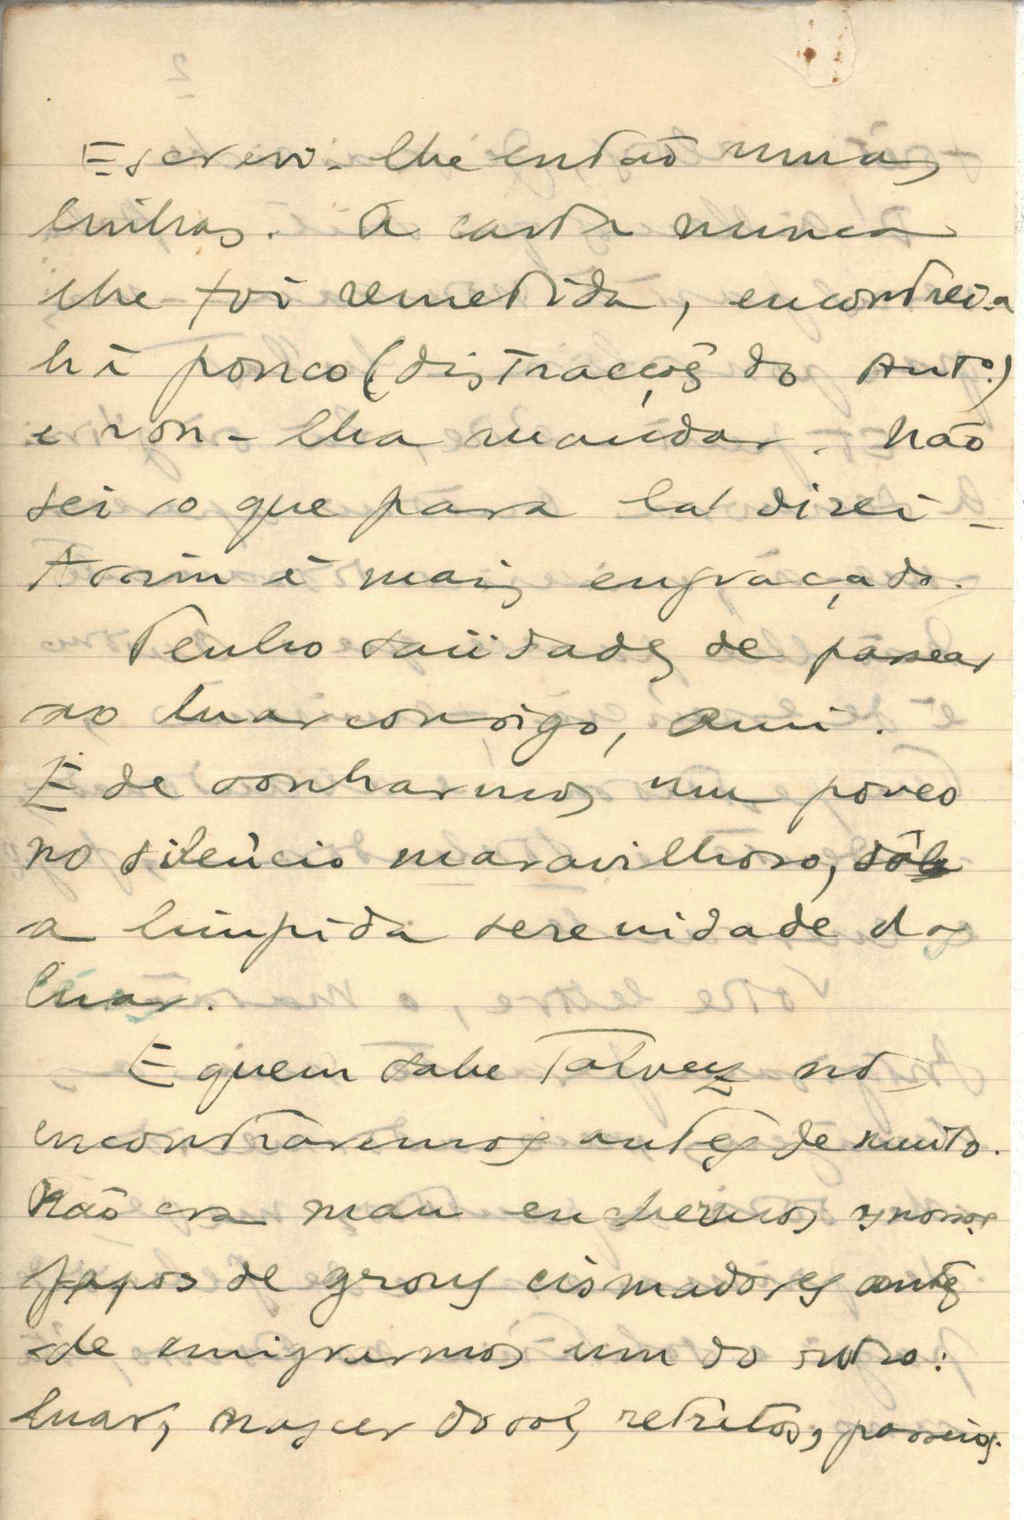 Escrevi-lhe então umas
linhas. A carta nunca
lhe foi remetida, encontrei-a
há pouco (distracções do Antº.)
e vou-lha mandar. Não
sei o que para lá direi -
Assim é mais engraçado.
Tenho saüdades de passear
ao luar consigo, Ami.
E de sonharmos um pouco
no silêncio maravilhoso, sôb
a límpida serenidade do
luar.
E quem sabe talvez nos
encontraremos antes de muito.
Não era mau enchermos os nossos
papos de grous cismadores antes
de emigrarmos um do outro:
luar, nascer do sol, retratos, passeios.